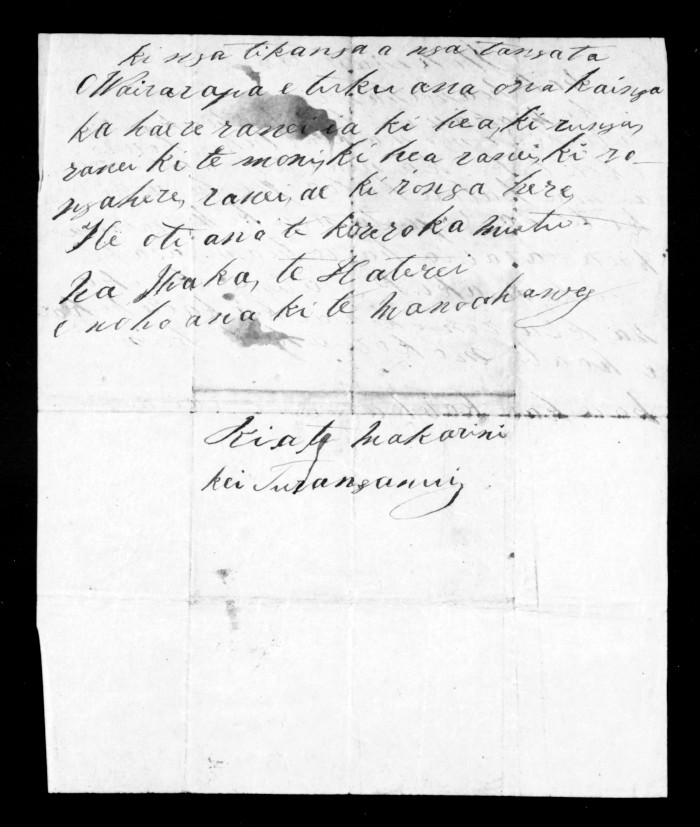 ki nga tikanga a nga tangata
O Wairarapa e tuku ana ona kainga
ka haere ranei ia ki hea, ki runga,
ranei ki te moni, ki hea ranei, ki ro-
ngahere, ranei, ae ki ronga here,
He oti ana te korero ka mutu
Na Ihaka, te Haterei
e noho ana ki te Manaoahawey
Kia te Makarini
kei Turanganui,